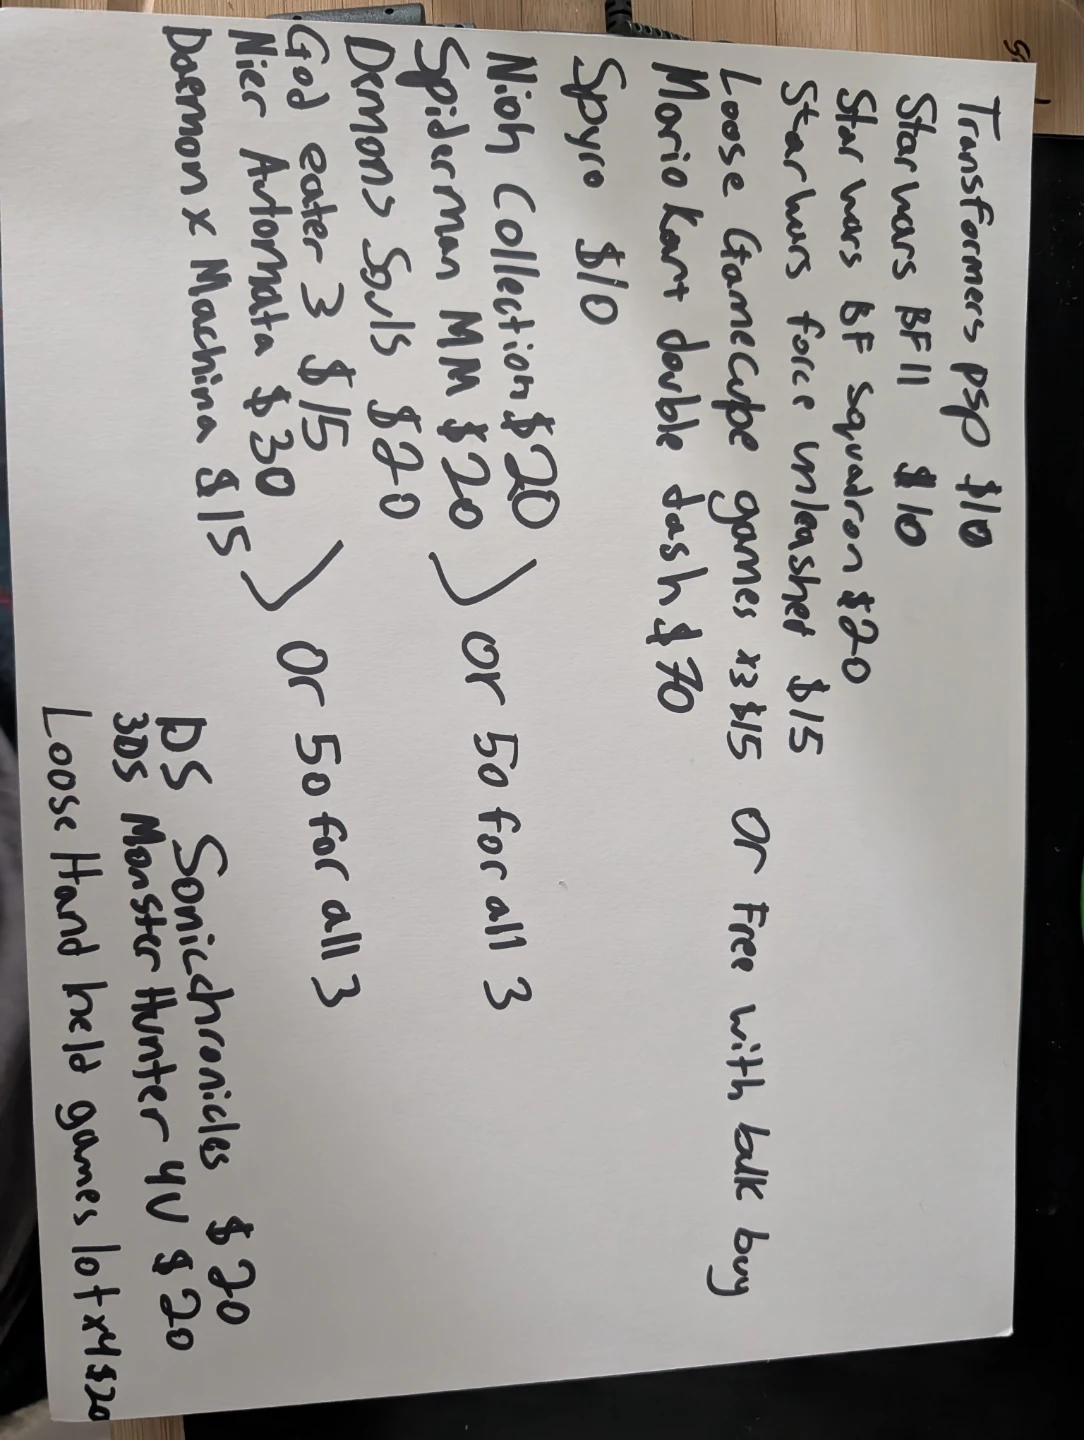 Transformers PSP $10
Starwars BF11 $10
Star wars BF squadron $20
Starwars force unleashed $15
Loose Gamecube games x3 $15 or Free with bulk buy
Mario Kart double dash $70
Spyro $10
Nioh Collection $20
Spiderman MM $20 > or 50 for all 3
Demons Souls $20
God eater 3 $15
Nier Automata $30 > or 50 for all 3
Daemon x Machina $15
DS Sonic chronicles $20
3DS Monster Hunter 4U $20
Loose Hand held games lot x4 $20